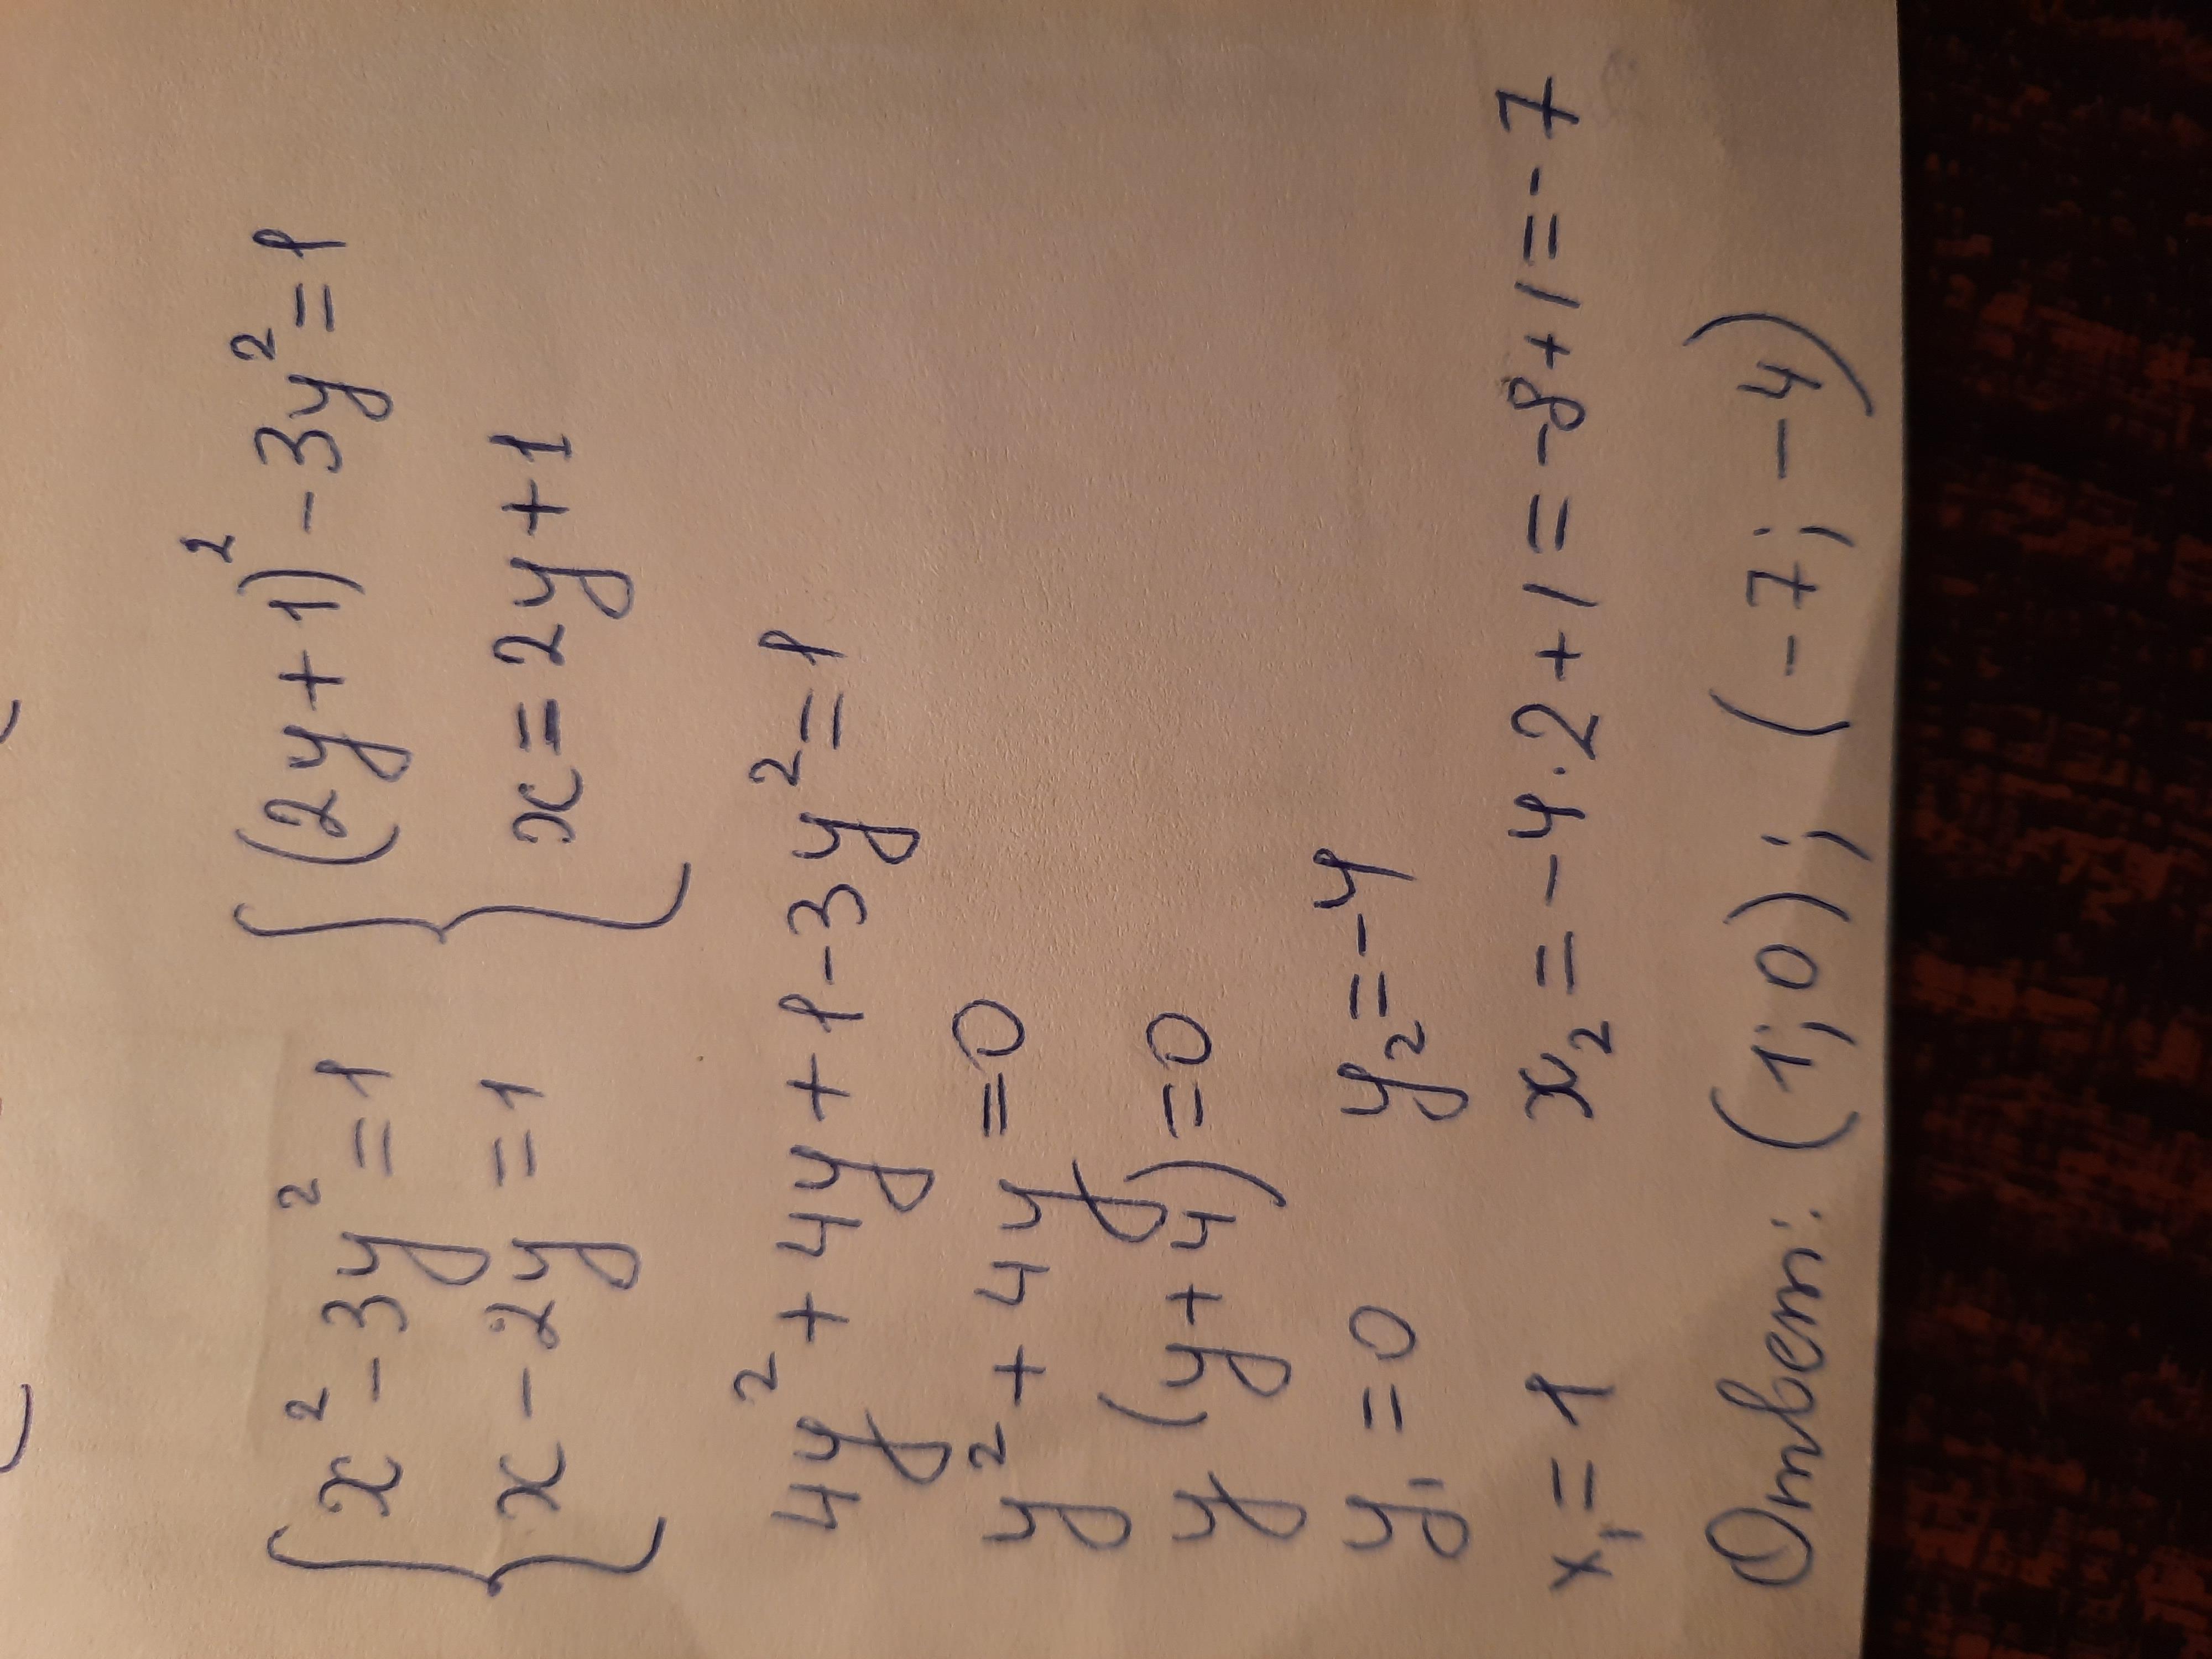 { x² - 3y² = 1 { (2y + 1)² - 3y² = 1
x - 2y = 1 x = 2y + 1
4y² + 4y + 1 - 3y² = 1
y² + 4y = 0
y (y + 4) = 0
y₁ = 0 y₂ = -4
x₁ = 1 x₂ = -4 · 2 + 1 = -8 + 1 = -7
Ответ: (1; 0); (-7; -4)